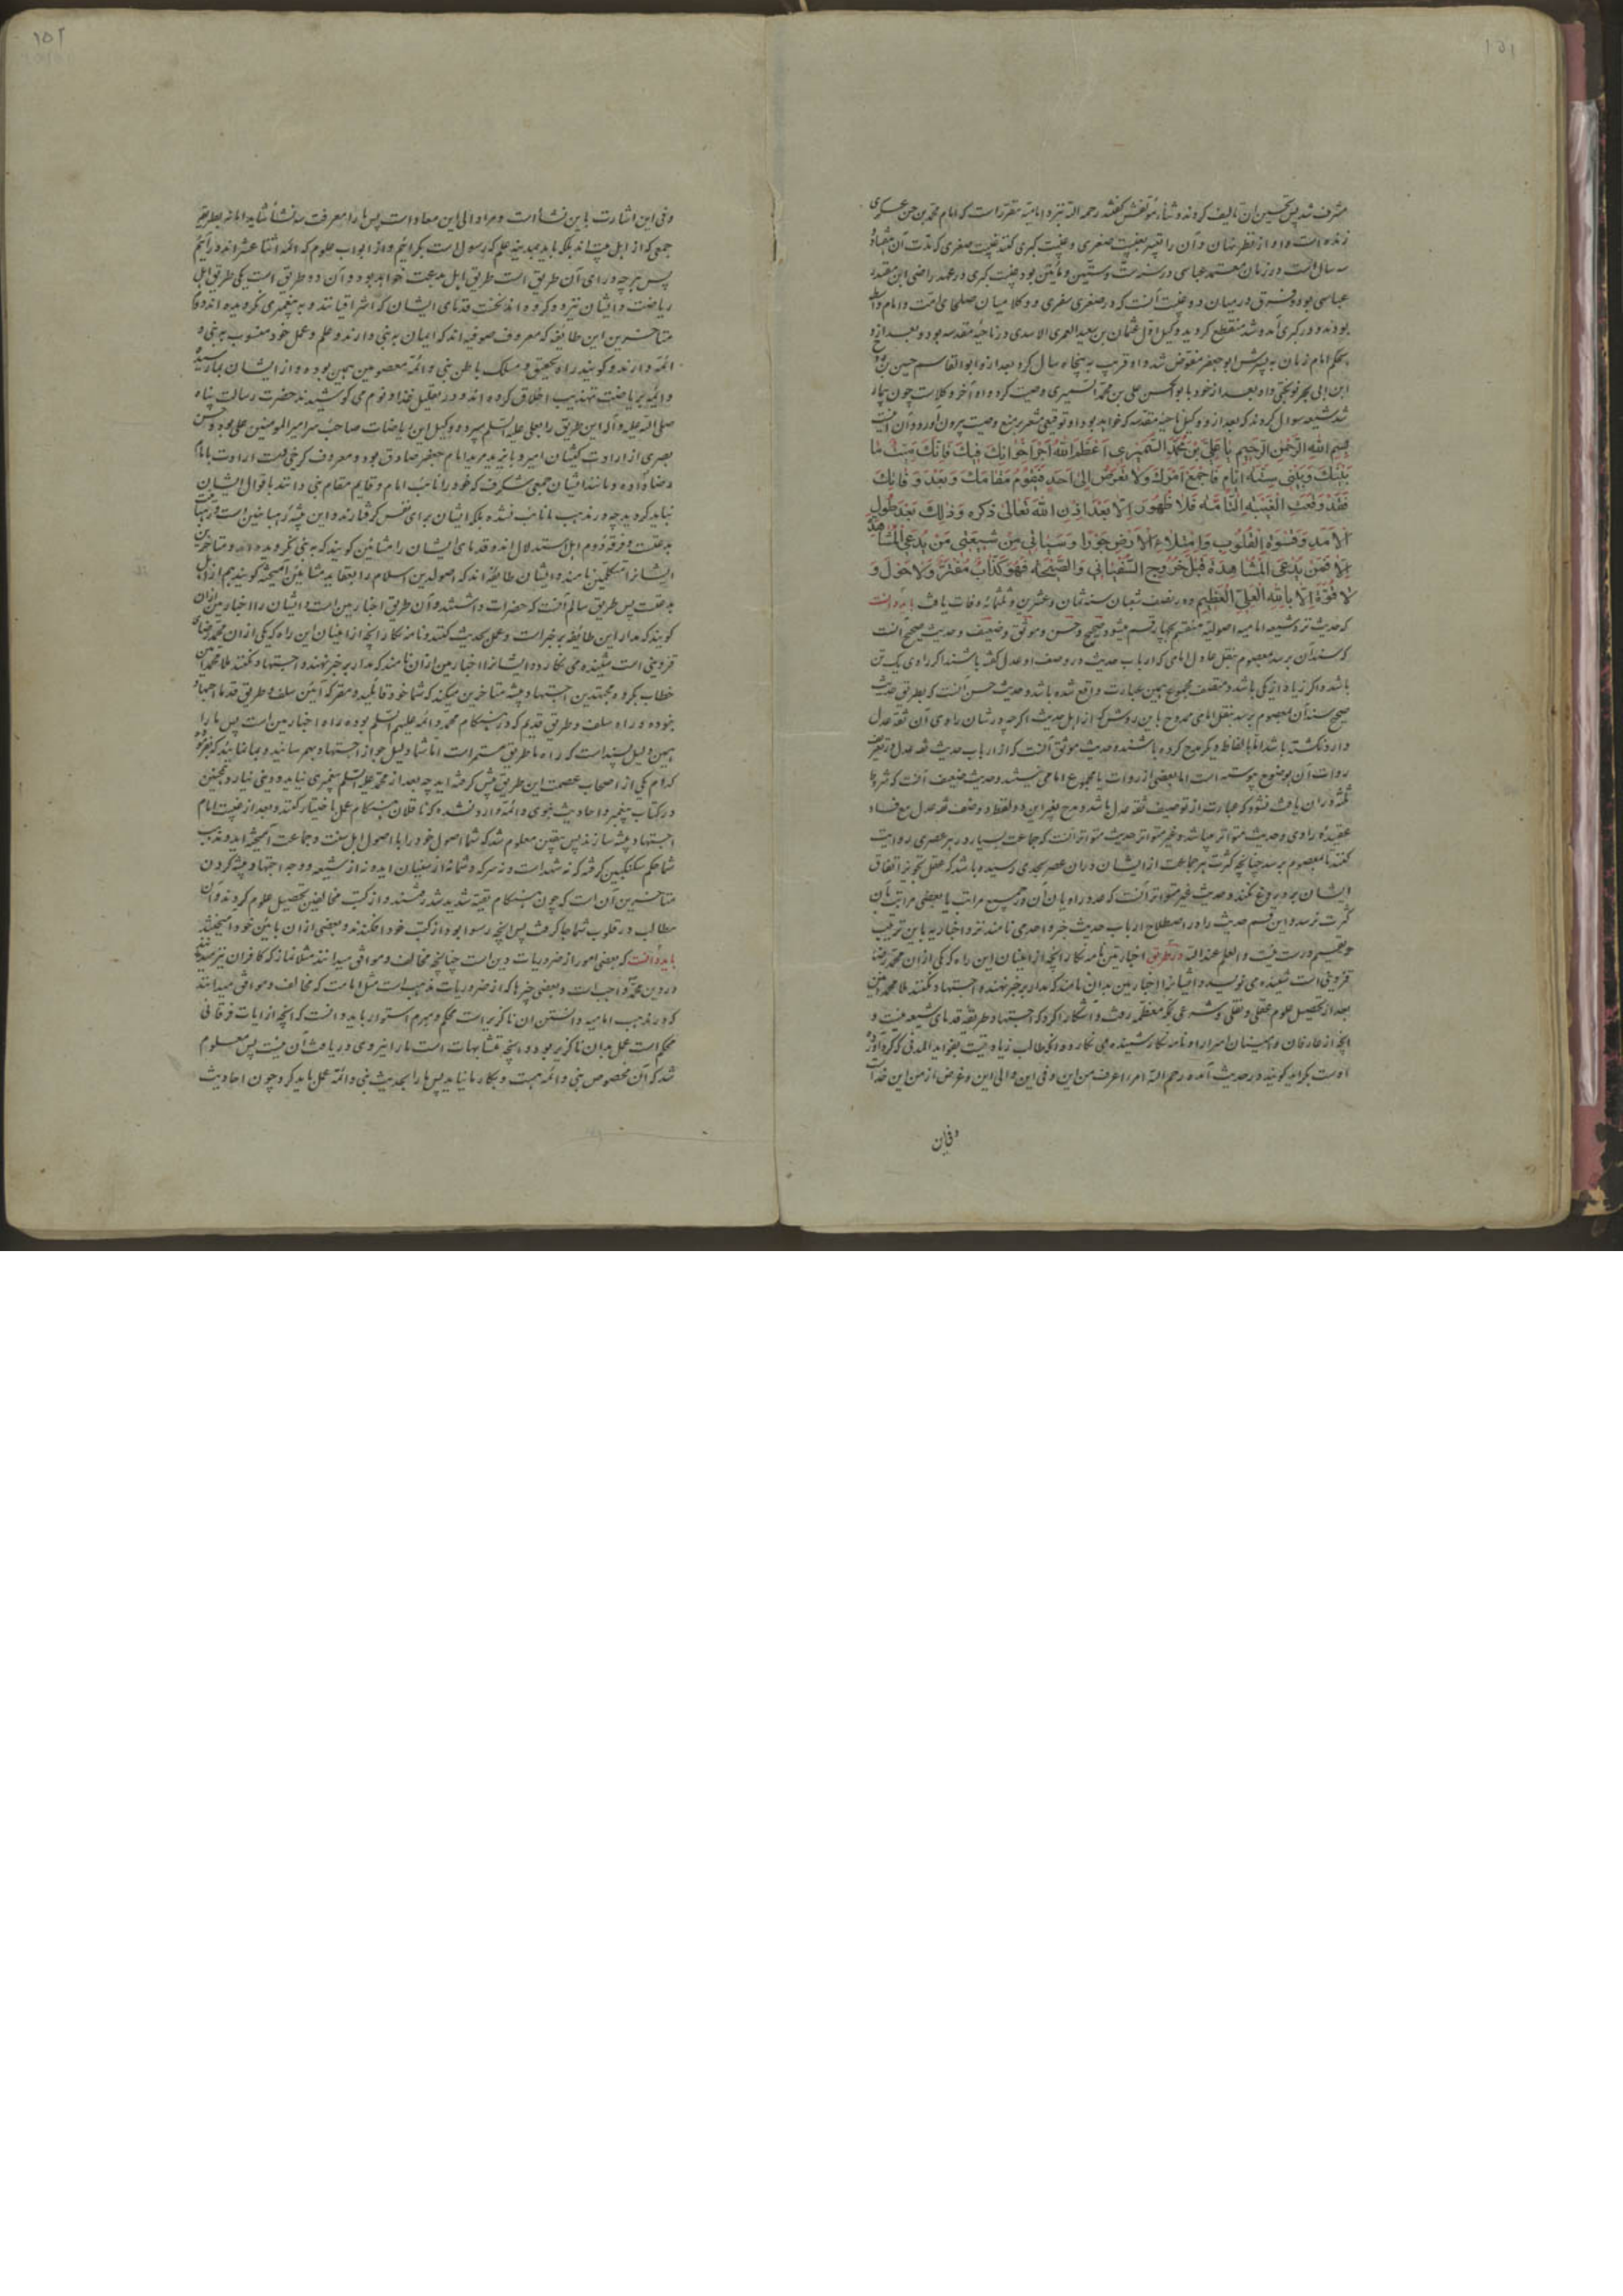 ۱۵۱
مشرف شد پس تحسین آن تالیف کردند و ثناء مؤلفش گفتند رحمه الله نزد امامیه مقرر است که امام محمد بن حسن عسکری
زنده است و او از نظر نهان و آن را غیبت صغری و غیبت کبری گفتند غیبت صغری که مدت آن هفتاد و
سه سال است در زمان معتمد عباسی در سنه ست و ستین و مأتین بود غیبت کبری در عهد راضی ابن مقتدر
عباسی بوده و فرق در میان دو غیبت آنست که در صغری سفری و وکلا میان صلحای امت و امام واسطه
بودند و در کبری آمد و شد منقطع گردید وکیل اول عثمان بن سعید العمری الاسدی در ناحیه مقدسه بود و بعد از او
بحکم امام زمان به پسرش ابو جعفر مفوض شد و او قریب به پنجاه سال کرد بعد از او ابو القاسم حسین بن روح
ابن ابی بحر نوبختی و او بعد از خود با بو الحسن علی بن محمد السمیری وصیت کرد و او آخر وکلاست چون بیمار
شد شیعه سوال کردند که بعد از تو وکیل ناحیه مقدسه که خواهد بود او توقیعی مشعر بر منع وصیت بیرون آورد و آن اینست
بِسْمِ اللهِ الرَّحْمٰنِ الرَّحِیْمِ یَا عَلِیَّ بْنَ مُحَمَّدٍ السَّمَیْرِی اَعْظَمَ اللهُ اَجْرَ اِخْوَانِكَ فِیْكَ فَاِنَّكَ مَیِّتٌ مَا
بَیْنَكَ وَبَیْنَ سِتَّةِ اَیَّامٍ فَاجْمَعْ اَمْرَكَ وَلَا تُفَوِّضْ اِلٰی اَحَدٍ فَیَقُوْمُ مَقَامَكَ بَعْدَ وَفَاتِكَ
فَقَدْ وَقَعَتِ الْغَیْبَةُ التَّامَّةُ فَلَا ظُهُوْرَ اِلَّا بَعْدَ اِذْنِ اللهِ تَعَالٰی ذِکْرُهُ وَذٰلِكَ بَعْدَ طُوْلِ
الْاَمَدِ وَقَسْوَةِ الْقُلُوْبِ وَامْتِلَاءِ الْاَرْضِ جَوْرًا وَسَیَأْتِی مِنْ شِیْعَتِی مَنْ یَدَّعِی الْمُشَاهَدَةَ
اَلَا فَمَنْ یَدَّعِی الْمُشَاهَدَةَ قَبْلَ خُرُوْجِ السُّفْیَانِی وَالصَّیْحَةِ فَهُوَ کَذَّابٌ مُفْتَرٍ وَلَا حَوْلَ وَ
لَا قُوَّةَ اِلَّا بِاللهِ الْعَلِیِّ الْعَظِیْمِ و در نصف شعبان سنه ثمان و عشرین و ثلثمائه وفات یافت باید دانست
که حدیث نزد شیعه امامیه اصولیه منقسم بچهار قسم میشود صحیح و حسن و موثق و ضعیف و حدیث صحیح آنست
که سند آن برسد بمعصوم بنقل عادل امامی که ارباب حدیث در وصف او عدل گفته باشند اگر راوی یک تن
باشد و اگر زیاد از یکی باشد در وصف مجموع همین عبارت واقع شده باشد و حدیث حسن آنست که بطریق حدیث
صحیح سند آن بمعصوم برسد بنقل امامی ممدوح باین روش که از اهل حدیث اگرچه در شان راوی آن ثقه عدل
وارد نگشته باشد اما بالفاظ دیگر مدح کرده باشند و حدیث موثق آنست که از ارباب حدیث ثقه عدل در تعریف
روات آن بوضوح پیوسته است اما بعضی از روات یا مجموع امامی نیستند و حدیث ضعیف آنست که شروط
ثلثه در آن یافت نشود که عبارت از توصیف ثقه عدل باشد و مدح بغیر این دو لفظ و وصف ثقه عدل مع فساد
عقیده راوی و حدیث متواتر میباشد و غیر متواتر حدیث متواتر آنست که جماعت بسیار در هر عصری روایت
کنند تا بمعصوم برسد چنانچه کثرت هر جماعت از ایشان در آن عصر بحدی رسیده باشد که عقل تجویز اتفاق
ایشان بر دروغ نکند و حدیث غیر متواتر آنست که عدد راویان آن در جمیع مراتب یا بعضی مراتب بآن
کثرت نرسد و این قسم حدیث را در اصطلاح ارباب حدیث خبر واحد می نامند نزد اخباریه باین ترتیب
و تقسیم درست نیست و العلم عند الله در طریق اخباریین نامه نگار آنچه از امینان این راه که یکی از آن محمد رضا
قزوینی است شنیده می نویسد و ایشانرا اخباریین بدان نامند که مدار بر خبر نهند و اجتهاد نکنند ملا محمد امین
بعد از تحصیل علوم عقلی و نقلی و شرعی بمکه معظمه رفت و آشکارا کرد که اجتهاد طریقه قدمای شیعه نیست و
آنچه از عارفان و امینان اسرار او نامه نگار شنیده می نگارد و آنکه طالب زیادتیست بفواید المدنی که گردآورده
اوست بگراید گویند در حدیث آمده رحم الله امرا عرف من این و فی این و الی این و غرض از من این خداست
و فی این
۱۵۲
و فی این اشارت باین نشأ است و مراد الی این معاد است پس ما را معرفت سه نشأ شاید اما نه بطریقه
جمعی که از اهل بیت اند بلکه باید بمدینه علم که رسول است بگرائیم و از ابواب علوم که ائمه اثنا عشر اند درآئیم
پس هر چه ورای آن طریق است طریق اهل بدعت خواهد بود و آن دو طریق است یکی طریق اهل
ریاضت و ایشان نیز دو گروه اند نخست قدمای ایشان که اشراقیانند و به پیغمبری نگرویده اند و
متاخرین این طایفه که معروف صوفیه اند که ایمان به نبی دارند و علم و عمل خود منسوب به نبی و
ائمه دارند و گویند راه تحقیق و مسلک باطن نبی و ائمه معصومین همین بوده و از ایشان بما رسیده
و ائمه بریاضت تهذیب اخلاق کرده اند و در تقلیل غذا و نوم می کوشیدند حضرت رسالت پناه
صلی الله علیه و آله این طریق را بعلی علیه السلم سپرد و وکیل این ریاضات صاحب سر امیر المومنین علی بوده و حسن
بصری از ارادت کیشان امیر و بایزید مرید امام جعفر صادق بود و معروف کرخی دست ارادت بامام
رضا داده و مانند ایشان جمعی شگرف که خود را نایب امام و قایم مقام نبی دانند باقوال ایشان
نباید گروید چه در مذهب ما نایب نشده بلکه ایشان برای نفس گرفتارند و این پیشه رهبانین است و رهبانیت
بدعتست و فرقه دوم اهل استدلال اند و قدمای ایشان را مشائین گویند که به نبی نگرویده و متاخرین
ایشانرا متکلمین نامند و ایشان طایفه اند که اصول دین اسلام را بعقاید مشائین آمیخته گویند هم از اهل
بدعتست پس طریق سالم آنست که حضرات داشتند و آن طریق اخباریین است و ایشان را اخباریین از آن
گویند که مدار این طایفه بر خبر است و عمل بحدیث کنند و نامه نگار آنچه از امینان این راه که یکی از آن محمد رضای
قزوینی است شنیده می نگارد و ایشانرا اخباریین از آن نامند که مدار بر خبر نهند و اجتهاد نکنند ملا محمد امین
خطاب بگروه مجتهدین اجتهاد پیشه متاخرین میکند که شما خود قایلید و مقر که آیین سلف و طریق قدما اجتهاد
نبوده و راه سلف و طریق قدیم که در هنگام محمد و ائمه علیهم السلم بوده راه اخباریین است پس ما را
همین دلیل بسند است که راه ما طریق مستمر است اما شما دلیل جواز اجتهاد بهم رسانید و بما نمائید که بفرموده
کدام یکی از اصحاب عصمت این طریق پیش گرفته اید چه بعد از محمد علیه السلم پیغمبری نیاید و دینی نیارد همچنین
در کتاب پیغمبر و احادیث نبوی و ائمه وارد نشده که ناقلان هنگام عمل باختیار کنند و بعد از غیبت امام
اجتهاد پیشه سازند پس بیقین معلوم شد که شما اصول خود را با اصول اهل سنت و جماعت آمیخته اید و مذهب
شما حکم سکنجبین گرفته که نه شهد است و نه سرکه و شما نه از سنیان اید و نه از شیعه و وجه اجتهاد پیشه کردن
متاخرین آن است که چون هنگام تقیه شدید شد رفتند و از کتب مخالفین تحصیل علوم کردند و آن
مطالب در قلوب شما جا گرفت پس آنچه رسوا بود از کتب خود افکندند و بعضی از آن بآیین خود آمیختند
باید دانست که بعضی امور از ضروریات دین است چنانچه مخالف و موافق میدانند مثلا نماز که کافران نیز میدانند
در دین محمد واجب است و بعضی چیزها که از ضروریات مذهب است مثل امامت که مخالف و موافق میدانند
که در مذهب امامیه دانستن آن ناگزیر است محکم و مبرم استوار باید دانست که آنچه از آیات فرقانی
محکم است عمل بدان ناگزیر بود و آنچه متشابهات است ما را نیروی دریافت آن نیست پس معلوم
شد که آن مخصوص نبی و ائمه است و بکار ما نیاید پس ما را بحدیث نبی و ائمه عمل باید کرد و چون احادیث